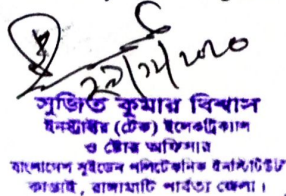 সুজিত কুমার বিশ্বাস
ইনস্ট্রাক্টর (টেক) ইলেকট্রিক্যাল
ও ষ্টোর অফিসার
বাংলাদেশ সুইডেন পলিটেকনিক ইনস্টিটিউট
কাপ্তাই, রাঙ্গামাটি পার্বত্য জেলা।